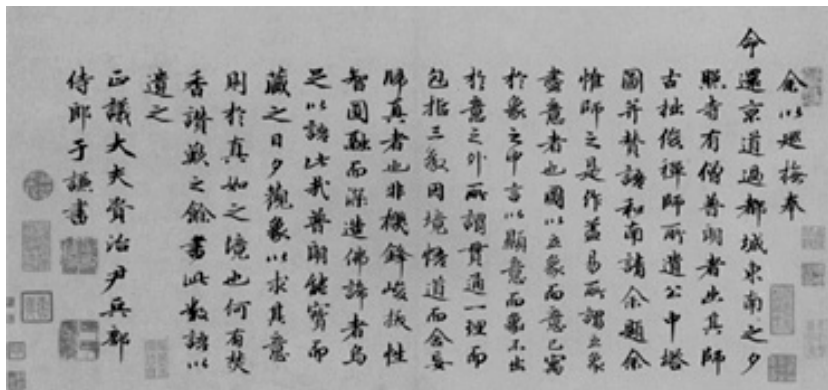 余以巡撫奉
命還京道過都城東南之夕
照寺有僧普朗者出其師
古拙俊禪師所遺公中塔
圖并贊語和南請余題余
惟師之是作蓋易所謂立象
盡意者也圖以立象而意已寓
於象之中言以顯意而象不出
於意之外所謂貫通一理而
包括三教因境悟道而舍妄
歸真者也非機鋒峻拔性
智圓融而深造佛諦者烏
足以語此哉普朗能寶而
藏之日夕觀象以求其意
則於真如之境也何有焚
香讚歎之餘書此數語以
遺之
正議大夫資治尹兵部
侍郎于謙書